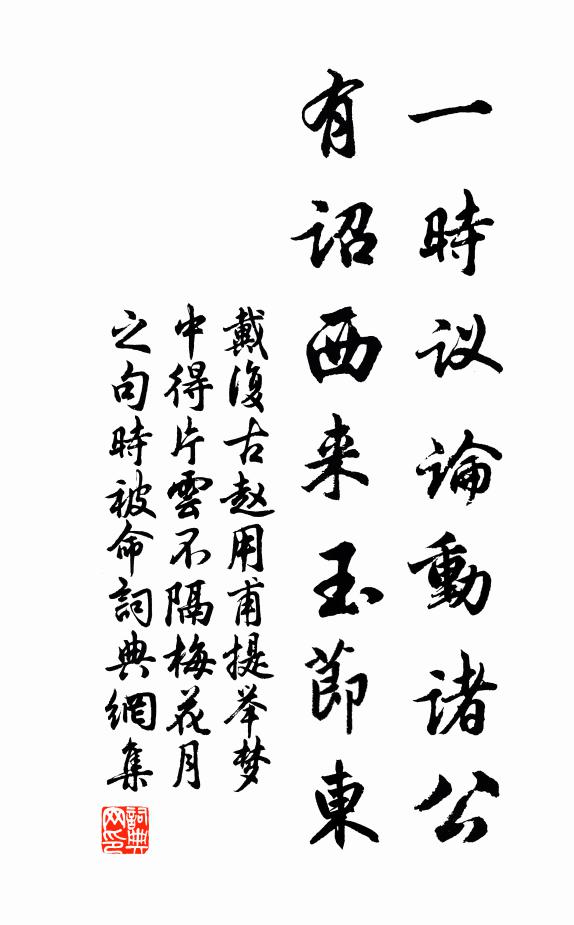 一時议論動諸公
有詔西来玉節東
戴復古赵用甫提举梦
中得片雲不隔梅花月
之句時被命詞典網集
詞典
网印